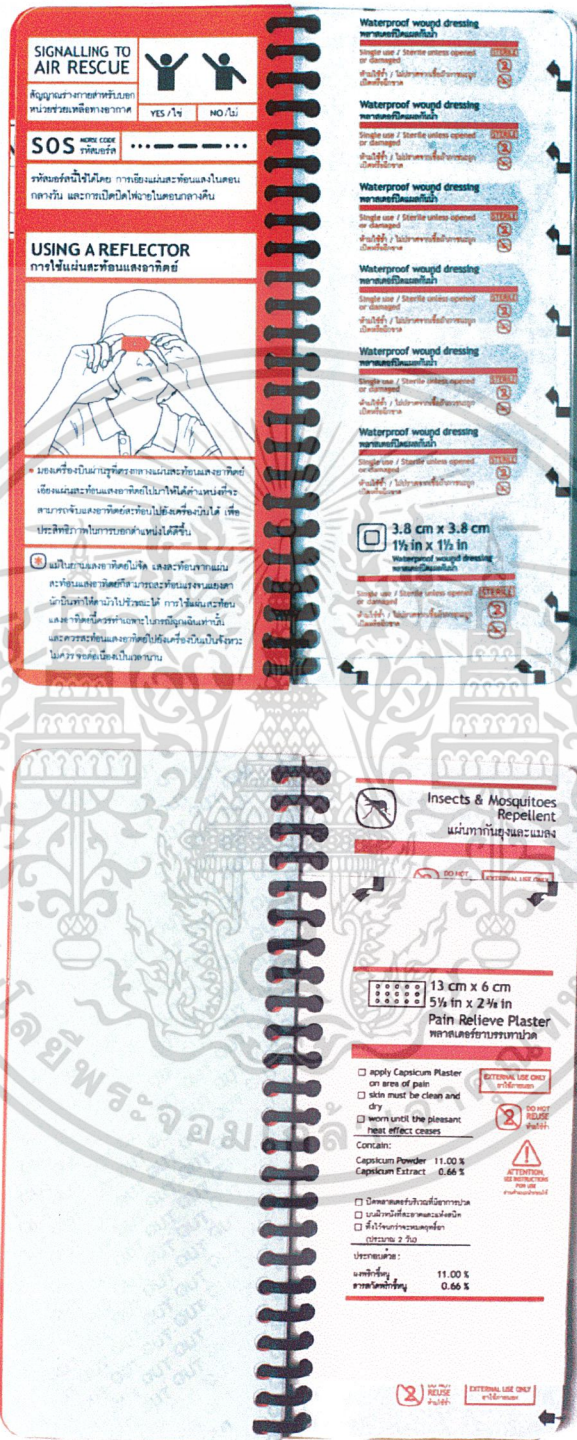 SIGNALLING TO
AIR RESCUE
สัญญาณร่างกายสำหรับบอก
หน่วยช่วยเหลือทางอากาศ
YES / ใช่
NO / ไม่
SOS MORSE CODE
รหัสมอร์ส
รหัสมอร์สนี้ใช้ได้โดย การเอียงแผ่นสะท้อนแสงในตอน
กลางวัน และการเปิดปิดไฟฉายในตอนกลางคืน
USING A REFLECTOR
การใช้แผ่นสะท้อนแสงอาทิตย์
มองเครื่องบินผ่านรูที่ตรงกลางแผ่นสะท้อนแสงอาทิตย์
เอียงแผ่นสะท้อนแสงอาทิตย์ไปมาให้ได้ตำแหน่งที่จะ
สามารถจับแสงอาทิตย์สะท้อนไปยังเครื่องบินได้ เพื่อ
ประสิทธิภาพในการบอกตำแหน่งได้ดีขึ้น
แม้ในยามแสงอาทิตย์ไม่จัด แสงสะท้อนจากแผ่น
สะท้อนแสงอาทิตย์ก็สามารถสะท้อนแรงจนแยงตา
นักบินทำให้ตามัวไปชั่วขณะได้ การใช้แผ่นสะท้อน
แสงอาทิตย์นี้ควรทำเฉพาะในกรณีฉุกเฉินเท่านั้น
และควรสะท้อนแสงอาทิตย์ไปยังเครื่องบินเป็นจังหวะ
ไม่ควร จ่อต่อเนื่องเป็นเวลานาน
Waterproof wound dressing
พลาสเตอร์ปิดแผลกันน้ำ
Single use / Sterile unless opened
or damaged
STERILE
ห้ามใช้ซ้ำ / ไม่ปราศจากเชื้อถ้าภาชนะถูก
เปิดหรือฉีกขาด
Waterproof wound dressing
พลาสเตอร์ปิดแผลกันน้ำ
Single use / Sterile unless opened
or damaged
STERILE
ห้ามใช้ซ้ำ / ไม่ปราศจากเชื้อถ้าภาชนะถูก
เปิดหรือฉีกขาด
Waterproof wound dressing
พลาสเตอร์ปิดแผลกันน้ำ
Single use / Sterile unless opened
or damaged
STERILE
ห้ามใช้ซ้ำ / ไม่ปราศจากเชื้อถ้าภาชนะถูก
เปิดหรือฉีกขาด
Waterproof wound dressing
พลาสเตอร์ปิดแผลกันน้ำ
Single use / Sterile unless opened
or damaged
STERILE
ห้ามใช้ซ้ำ / ไม่ปราศจากเชื้อถ้าภาชนะถูก
เปิดหรือฉีกขาด
Waterproof wound dressing
พลาสเตอร์ปิดแผลกันน้ำ
Single use / Sterile unless opened
or damaged
STERILE
ห้ามใช้ซ้ำ / ไม่ปราศจากเชื้อถ้าภาชนะถูก
เปิดหรือฉีกขาด
Waterproof wound dressing
พลาสเตอร์ปิดแผลกันน้ำ
Single use / Sterile unless opened
or damaged
STERILE
ห้ามใช้ซ้ำ / ไม่ปราศจากเชื้อถ้าภาชนะถูก
เปิดหรือฉีกขาด
3.8 cm x 3.8 cm
1½ in x 1½ in
Waterproof wound dressing
พลาสเตอร์ปิดแผลกันน้ำ
Single use / Sterile unless opened
or damaged
STERILE
ห้ามใช้ซ้ำ / ไม่ปราศจากเชื้อถ้าภาชนะถูก
เปิดหรือฉีกขาด
Insects & Mosquitoes
Repellent
แผ่นทากันยุงและแมลง
DO NOT
EXTERNAL USE ONLY
13 cm x 6 cm
Pain Relieve Plaster
พลาสเตอร์ยาบรรเทาปวด
apply Capsicum Plaster
on area of pain
skin must be clean and
dry
worn until the pleasant
heat effect ceases
EXTERNAL USE ONLY
ยาใช้ภายนอก
DO NOT
REUSE
ห้ามใช้ซ้ำ
ATTENTION,
SEE INSTRUCTIONS
FOR USE
อ่านคำแนะนำก่อนใช้
Contain:
Capsicum Powder 11.00 %
Capsicum Extract 0.66 %
ปิดพลาสเตอร์บริเวณที่มีอาการปวด
บนผิวหนังที่สะอาดและแห้งสนิท
ทิ้งไว้จนกว่าจะหมดฤทธิ์ยา
(ประมาณ 2 วัน)
ประกอบด้วย :
ผงพริกขี้หนู 11.00 %
สารสกัดพริกขี้หนู 0.66 %
DO NOT
REUSE
ห้ามใช้ซ้ำ
EXTERNAL USE ONLY
ยาใช้ภายนอก